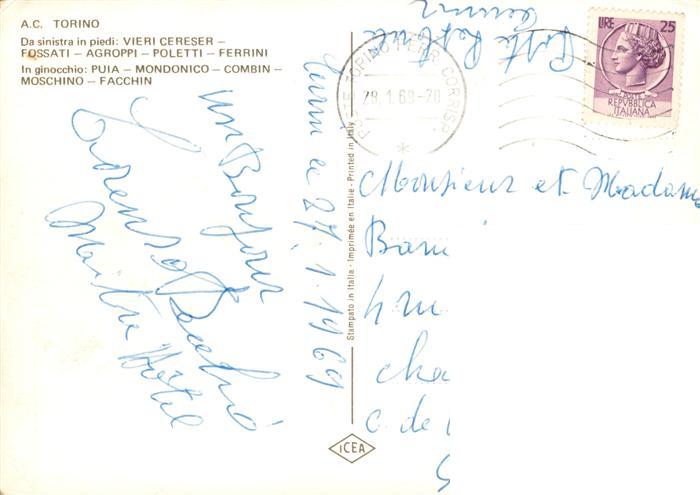 A.C. TORINO
Da sinistra in piedi: VIERI CERESER –
FOSSATI – AGROPPI – POLETTI – FERRINI
In ginocchio: PUIA – MONDONICO – COMBIN –
MOSCHINO – FACCHIN
un Bonjour
Maître Hôtel
le 27.1.1969
Stampato in Italia - Imprimée en Italie - Printed in Italy
ICEA
POSTE TORINO FERR CORRISP
28.1.69-20
LIRE 25
POSTE
REPVBBLICA
ITALIANA
Monsieur et Madame